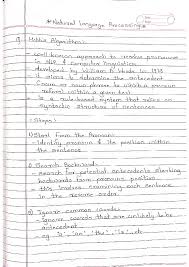 * Natural Language Processing *
Hobbs Algorithm:
- well known approach to resolve pronouns
in NLP & computational linguistics
- developed by William B. Hobbs in 1978
- it aims to determine the antecedent
(noun or noun phrase to which a pronoun
refers) within a given text
- is a rule-based system that relies on
syntactic structure & traversal.
Steps:
1) Start from the Pronoun:
- Identify pronoun & its position within
the sentence.
2) Search Backwards
- Search for potential antecedents starting
backwards from pronoun position.
- this involves examining each sentence
in the reverse order.
3) Ignore common words:
- Ignore words that are unlikely to be
antecedent.